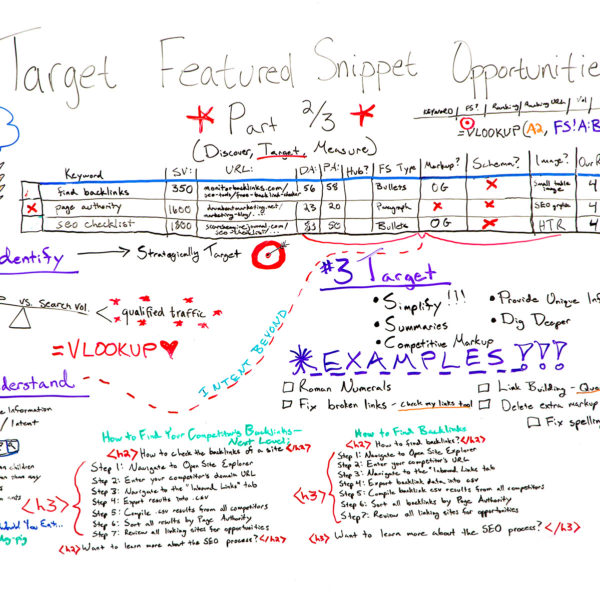 Target Featured Snippet Opportunitie
Part 2/3
(Discover, Target, Measure)
KEYWORD | FS? | Ranking | Ranking URL | Vol
=VLOOKUP(A2, FS!A:B
Keyword SV: URL: DA: PA: Hub? FS Type Markup? Schema? Image? Our R
find backlinks 350 monitorbacklinks.com/ 56 58 Bullets OG Small table image 4
seo-tools/free-backlink-checker
page authority 1600 23 20 Paragraph SEO graphic 4
marketing-blog/...
seo checklist 1800 searchenginejournal.com/ 50 Bullets OG HTR 4
seo-checklist/...
dentify
Strategically Target
#3 Target
• Simplify!!!
• Summaries
• Competitive Markup
• Provide Unique Inf
• Dig Deeper
vs. Search Vol.
qualified traffic
=VLOOKUP
INTENT BEYOND
EXAMPLES!!!
Roman Numerals
Fix broken links - check my links tool
Link Building - Quo
Delete extra markup
Fix spelling
derstand
e Information
/ latent
n children
than any
ould You Eat...
My-pig
How to Find Your Competitor's Backlinks -
Next Level:
<h2> How to check the backlinks of a site </h2>
<h3>
Step 1: Navigate to Open Site Explorer
Step 2: Enter your competitor's domain URL
Step 3: Navigate to the "Inbound Links" tab
Step 4: Export results into .csv
Step 5: Compile .csv results from all competitors
Step 6: Sort all results by Page Authority
Step 7: Review all linking sites for opportunities
<h2> Want to learn more about the SEO process? </h2>
How to Find Backlinks
<h2> How to find backlinks? </h2>
<h3>
Step 1: Navigate to Open Site Explorer
Step 2: Enter your competitor's URL
Step 3: Navigate to the "Inbound Links tab
Step 4: Export backlink data into .csv
Step 5: Compile backlink csv results from all competitors
Step 6: Sort all backlinks by Page Authority
Step 7: Review all linking sites for opportunities
<h3> Want to learn more about the SEO process? </h3>